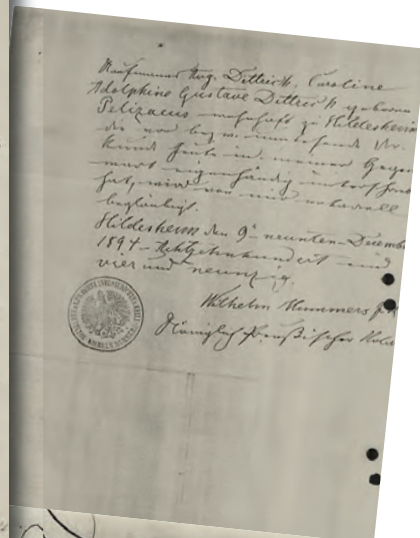 Kaufmanns Aug. Dittrich, Caroline
Adolphine Gustave Dittrich geborene
Pelizaeus wohnhaft zu Hildesheim
die vor bezw. umstehende Ur-
kunde heute in meiner Gegen
wart eigenhändig unterschrieben
hat, wird von mir notariell
beglaubigt.
Hildesheim den 9ᵗ neunten Decemb
1894 - Achtzehnhundert und
vier und neunzig.
Wilhelm Mummers
Königlich Preußischer Notar